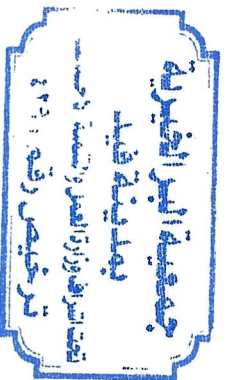 جمعية البر الخيرية
بمدينة فيد
تحت اشراف وزارة العمل والتنمية الاجتماعية
ترخيص رقم